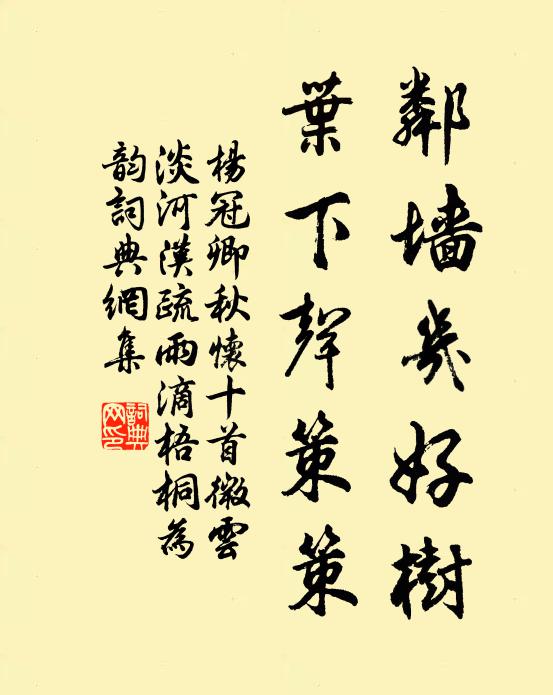 鄰墻幾好樹
葉下聲策策
楊冠卿秋懷十首微雲
淡河漢疏雨滴梧桐為
韵詞典網集
詞典網印